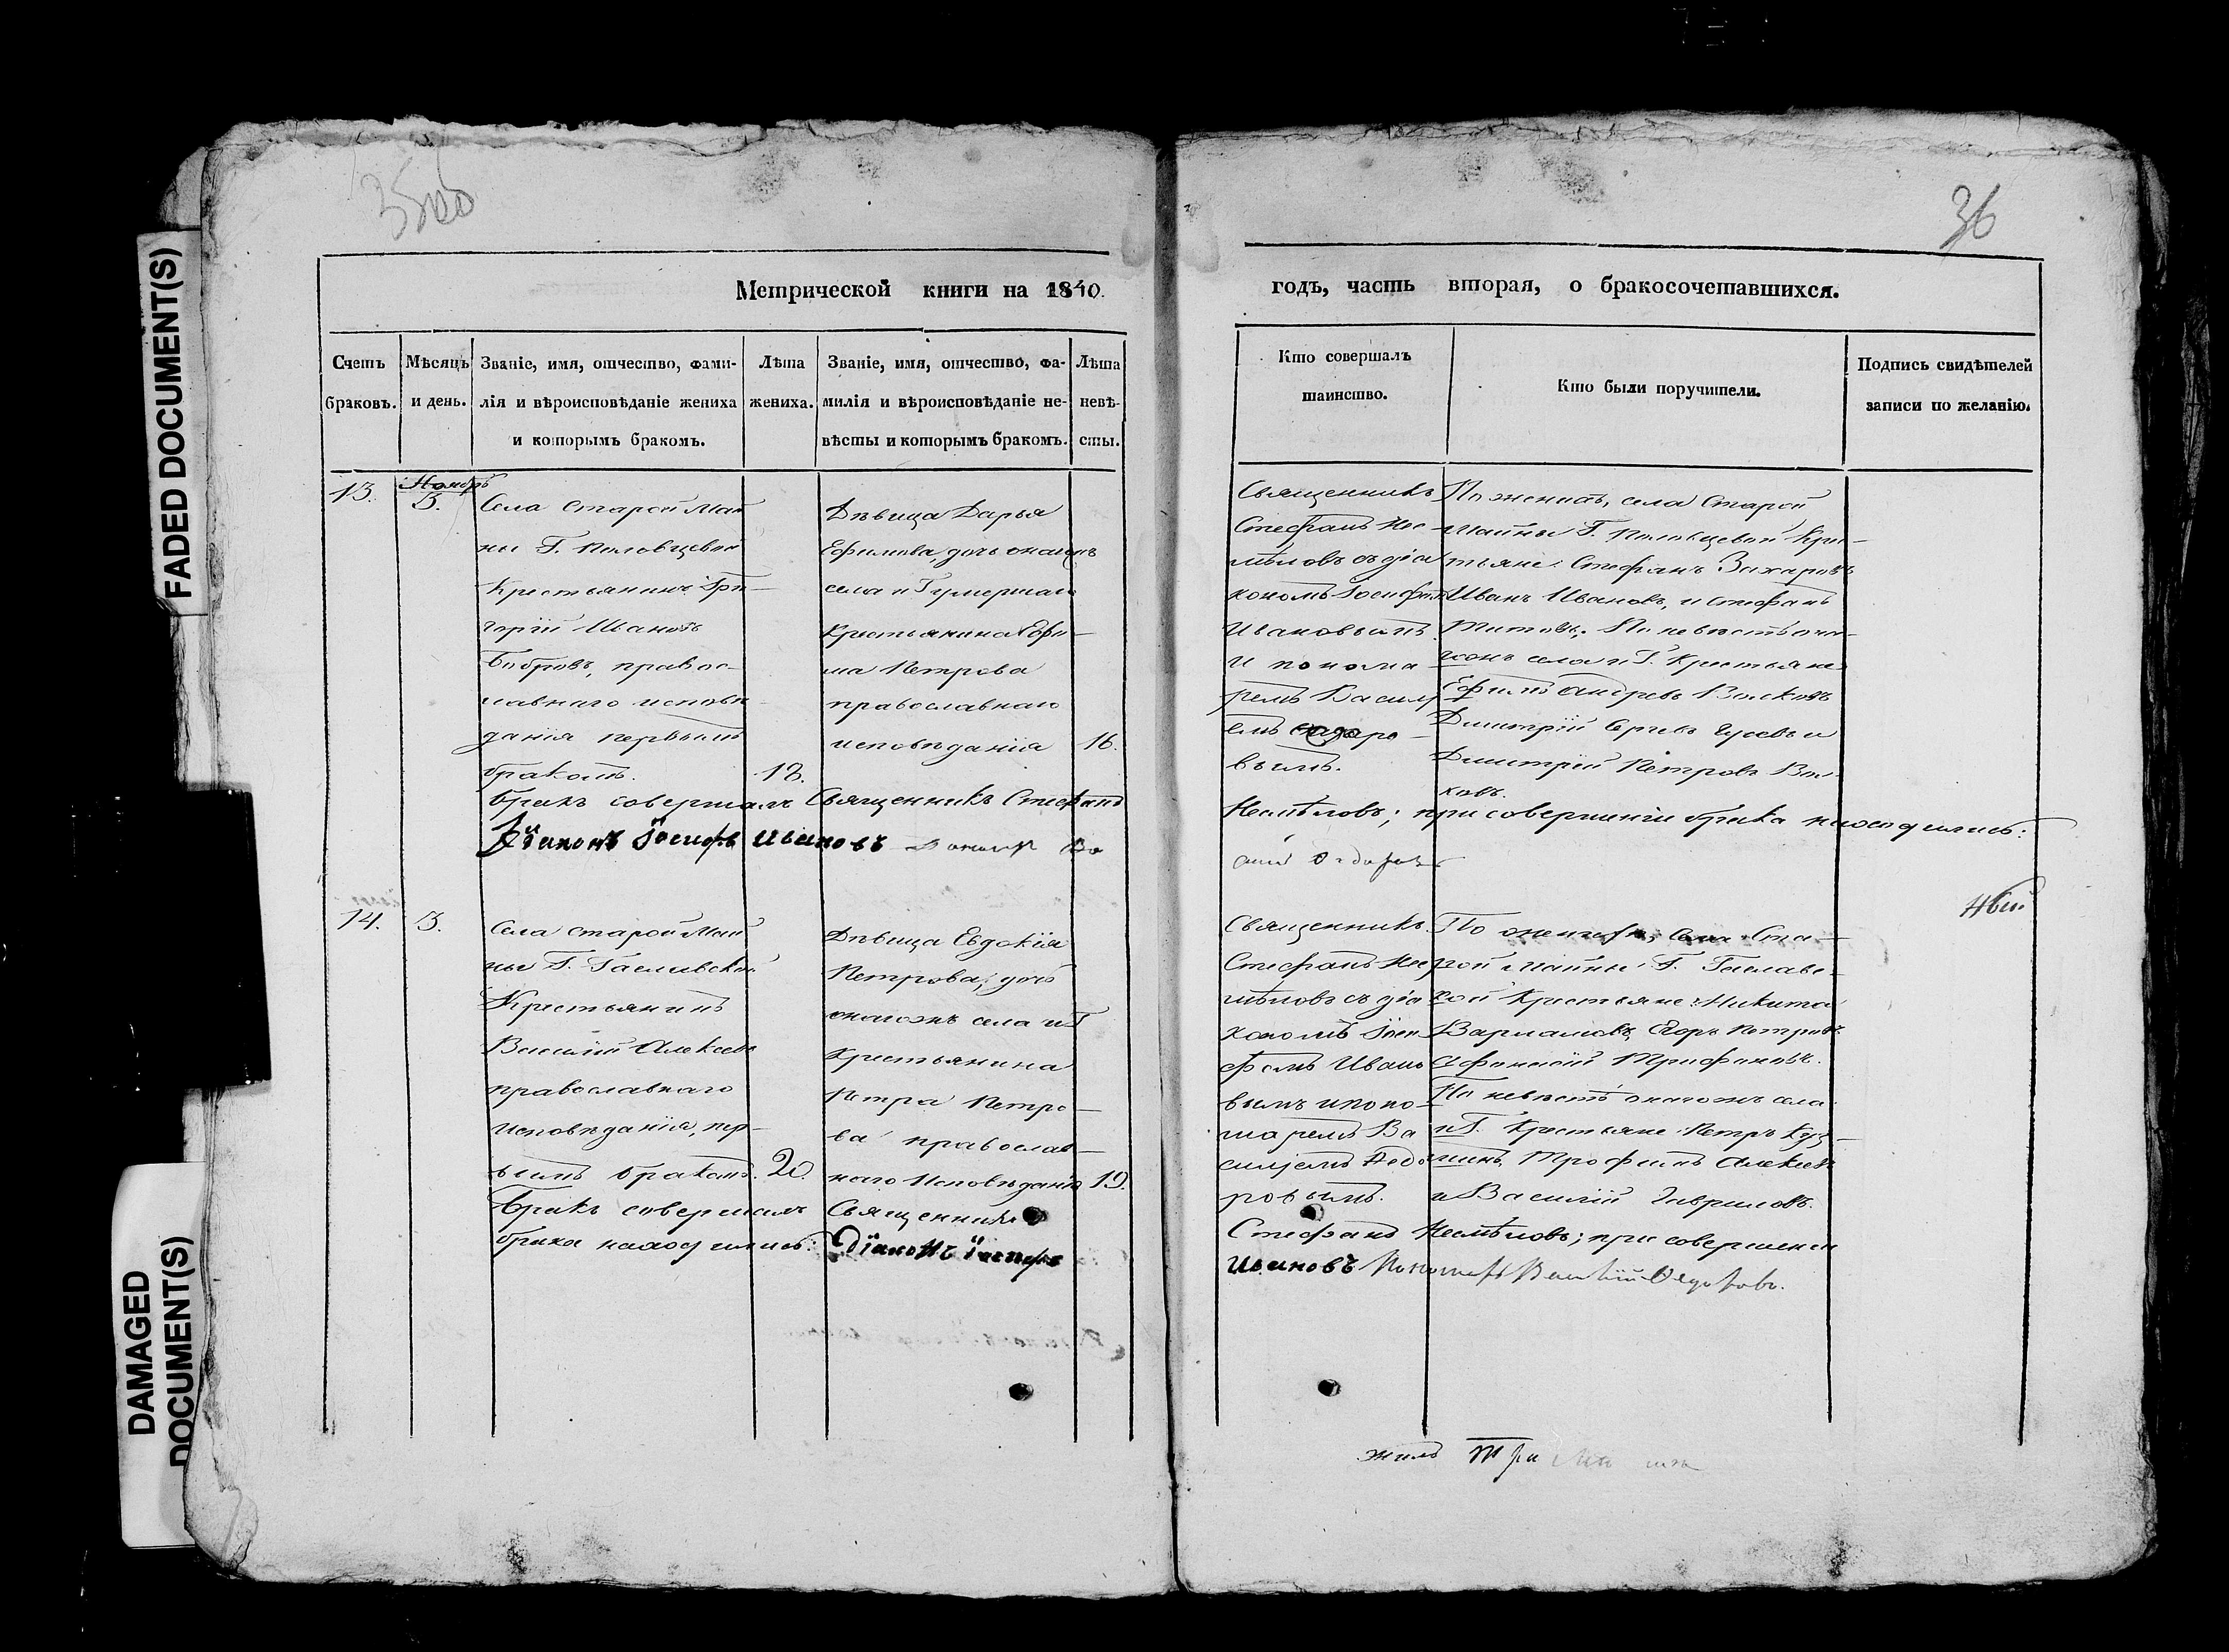 FADED DOCUMENT(S)
DAMAGED
DOCUMENT(S)
35об
36
Метрической книги на 1840.
годъ, часть вторая, о бракосочетавшихся.
Счетъ
браковъ.
Мѣсяцъ
и день.
Званіе, имя, отчество, фами-
лія и вѣроисповѣданіе жениха
и которымъ бракомъ.
Лѣта
жениха.
Званіе, имя, отчество, фа-
милія и вѣроисповѣданіе не-
вѣсты и которымъ бракомъ.
Лѣта
невѣ-
сты.
Кто совершалъ
таинство.
Кто были поручители.
Подпись свидѣтелей
записи по желанію.
13.
Ноябрь
3.
Села Старой Май
ны Г. Половцевой
Крестьянинъ Гри-
горій Ивановъ
Бобровъ, правос-
лавнаго исповѣ
данія первымъ
бракомъ.
18.
Дѣвица Дарья
Ефимова, дочь онагожъ
села и Г
Крестьянина Ефи-
ма Петрова
православнаго
исповѣданія
16.
Священникъ
Стефанъ Нес-
мѣловъ съ діа
кономъ Іосифомъ
Ивановымъ
и понома
ремъ Василі
емъ
вымъ.
По женихѣ, села Старой
Майны Г. Половцевой Кре-
стьяне: Стефанъ Захаровъ
Иванъ Ивановъ, и Стефанъ
Титовъ. По невѣстѣ она-
гожъ села и Г. Крестьяне
Ефимъ Андреевъ Волковъ
Димитрій Сергѣевъ Гусевъ и
Димитрій Петровъ Вол
ковъ.
Бракъ совершалъ Священникъ Стефанъ Несмѣловъ; при совершеніи брака находились:
Діаконъ Іосифъ Ивановъ
14.
3.
Села Старой Май
ны Г.
Крестьянинъ
Василій Алексѣевъ
православнаго
исповѣданія, пер-
вымъ бракомъ.
20.
Дѣвица Евдокія
Петрова, дочь
онагожъ села и Г
Крестьянина
Петра Петро-
ва православ-
наго Исповѣданія
19.
Священникъ
Стефанъ Нес
мѣловъ съ діа
кономъ Іоси
фомъ Ивано
вымъ и поно-
маремъ Ва
силіемъ Ѳедо
ровымъ.
По женихѣ, села Ста-
рой Майны Г.
кой Крестьяне: Никита
Варламовъ, Егоръ Петровъ
Афонасій Трифоновъ.
По невѣстѣ онагожъ села
и Г. Крестьяне: Петръ Куз-
минъ, Трофимъ Алексѣевъ
и Василій Гавриловъ.
Бракъ совершалъ Священникъ Стефанъ Несмѣловъ; при совершеніи
брака находились: Діаконъ Іосифъ Ивановъ Пономарь Василій Ѳедоровъ.